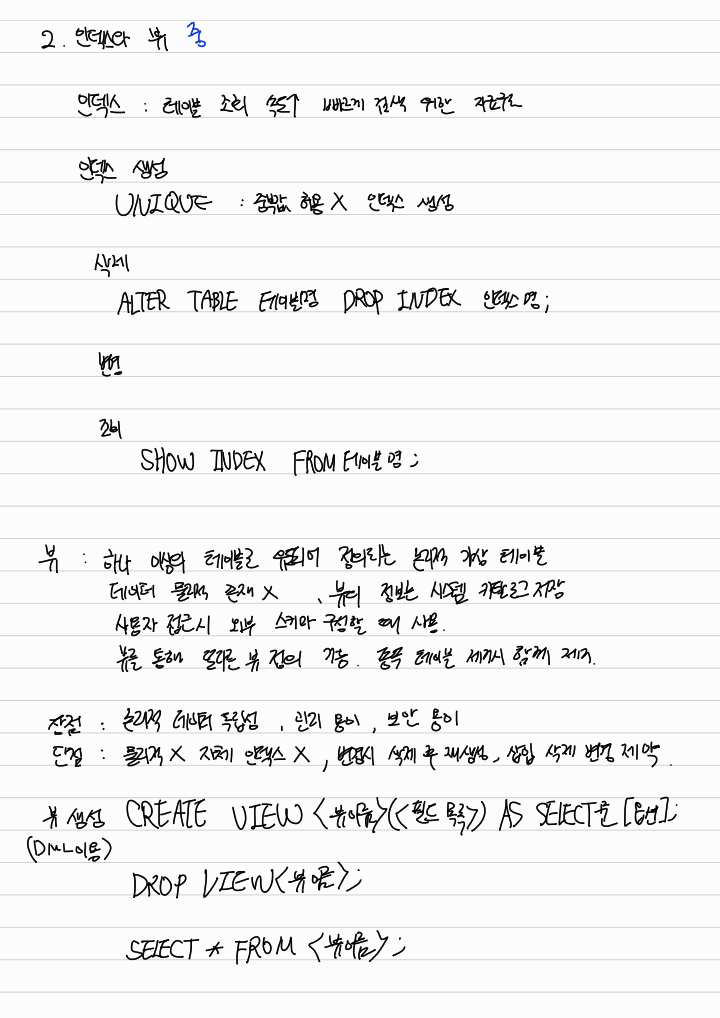 2. 인덱스와 뷰 중
인덱스 : 테이블 조회 속도↑ 빠르게 검색 위한 자료구조
인덱스 생성
UNIQUE : 중복값 허용 X 인덱스 생성
삭제
ALTER TABLE 테이블명 DROP INDEX 인덱스명;
변경
조회
SHOW INDEX FROM 테이블명;
뷰 : 하나 이상의 테이블로 유도되어 정의되는 논리적 가상 테이블
데이터 물리적 존재 X , 뷰의 정보는 시스템 카탈로그 저장
사용자 접근시 외부 스키마 구성할 때 사용.
뷰를 통해 또다른 뷰 정의 가능. 테이블 제거시 함께 제거.
장점 : 논리적 데이터 독립성 , 관리 용이 , 보안 용이
단점 : 물리적 X 자체 인덱스 X , 변경시 삭제 후 재생성, 삽입 삭제 변경 제약.
뷰 생성 CREATE VIEW <뷰이름>(<필드 목록>) AS SELECT문 [옵션];
(DML이용)
DROP VIEW<뷰이름>;
SELECT * FROM <뷰이름>;